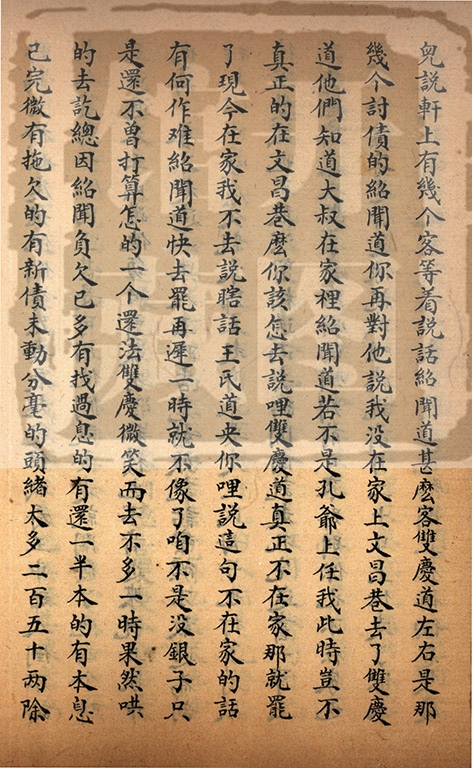 兒説軒上有幾个客等着説話紹聞道甚麽客雙慶道左右是那
幾个討債的紹聞道你再對他説我没在家上文昌巷去了雙慶
道他們知道大叔在家裡紹聞道若不是孔爺上任我此時豈不
真正的在文昌巷麽你該怎去説哩雙慶道真正不在家那就罷
了現今在家我不去説瞎話王氏道央你哩説這句不在家的話
有何作难紹聞道快去罷再遲一時就不像了咱不是没銀子只
是還不曽打算怎的一个還法雙慶微笑而去不多一時果然哄
的去訖總因紹聞負欠已多有找過息的有還一半本的有本息
已完微有拖欠的有新債未動分毫的頭緒太多二百五十两除